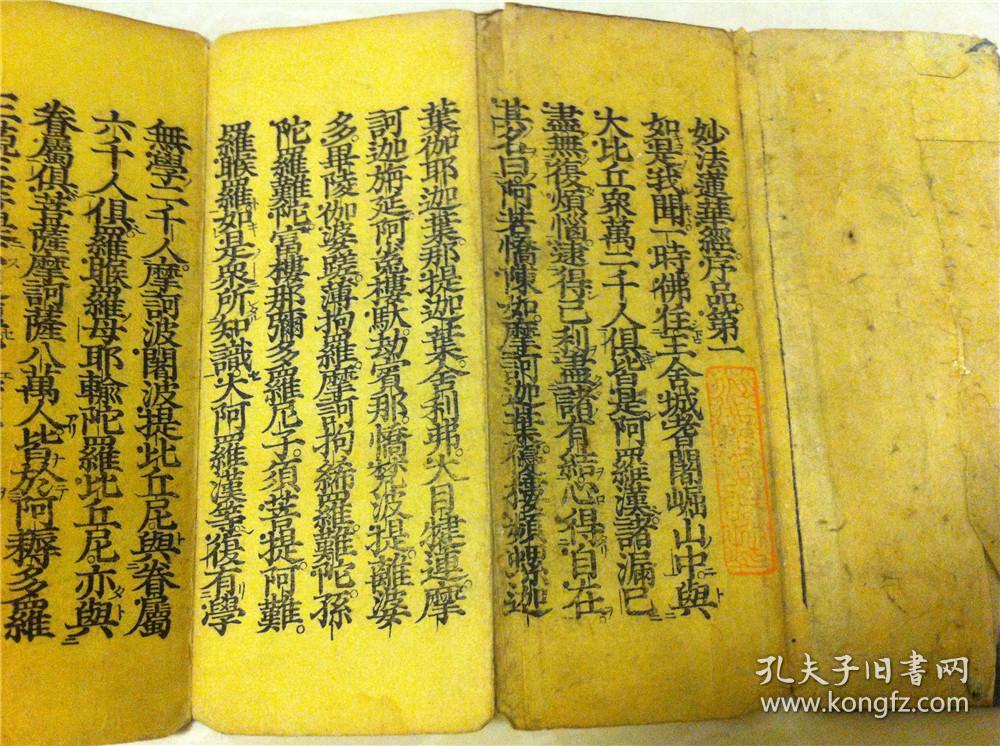 妙法蓮華經序品第一
如是我聞一時佛住王舍城耆闍崛山中與
大比丘衆萬二千人俱皆是阿羅漢諸漏已
盡無復煩惱逮得己利盡諸有結心得自在
其名曰阿若憍陳如摩訶迦葉優樓頻螺迦
葉伽耶迦葉那提迦葉舍利弗大目犍連摩
訶迦旃延阿㝹樓馱劫賓那憍梵波提離婆
多畢陵伽婆蹉薄拘羅摩訶拘絺羅難陀孫
陀羅難陀富樓那彌多羅尼子須菩提阿難
羅睺羅如是衆所知識大阿羅漢等復有學
無學二千人摩訶波闍波提比丘尼與眷屬
六千人俱羅睺羅母耶輸陀羅比丘尼亦與
眷屬俱菩薩摩訶薩八萬人皆於阿耨多羅
孔夫子旧書网
www.kongfz.com